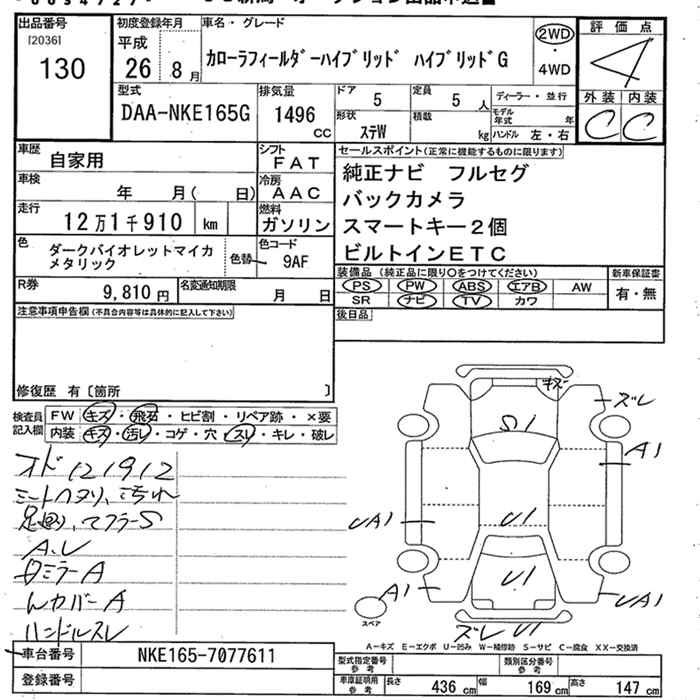 出品番号
[2036]
130
初度登録年月
平成
26 8月
車名・グレード
カローラフィールダーハイブリッド ハイブリッドG
2WD
・
4WD
評価点
4
外装 内装
C C
型式
DAA-NKE165G
排気量
1496 cc
ドア 5
定員 5人
ディーラー・並行
形状 ステW
積載 kg
モデル年式 年
ハンドル 左・右
車歴
自家用
シフト
FAT
車検
年 月( 日)
冷房
AAC
走行
12万1千910 km
燃料
ガソリン
色
ダークバイオレットマイカ
メタリック
色替
色コード
9AF
R券
9,810円
名変通知期限
月 日
セールスポイント(正常に機能するものに限ります)
純正ナビ フルセグ
バックカメラ
スマートキー2個
ビルトインETC
装備品(純正品に限り○をつけてください)
PS PW ABS エアB AW
SR ナビ TV カワ
新車保証書
有・無
後日品
注意事項申告欄(不具合内容等は具体的に記入して下さい)
修復歴 有〔箇所 〕
検査員
記入欄
FW キズ・飛石・ヒビ割・リペア跡・×要
内装 キズ・汚レ・コゲ・穴・スレ・キレ・破レ
オド121912
シートヘタリ、汚れ
足廻り、マフラーS
A、U
ミラーA
カバーA
ハンドルスレ
キズ
ズレ
S1
A1
UA1
U1
U1
A1
UA1
ズレ U1
スペア
A-キズ E-エクボ U-凹み W-補修跡 S-サビ C-腐食 XX-交換済
車台番号
NKE165-7077611
登録番号
型式指定番号
参考
類別区分番号
参考
車庫証明用
参考
長さ 436 cm
幅 169 cm
高さ 147 cm